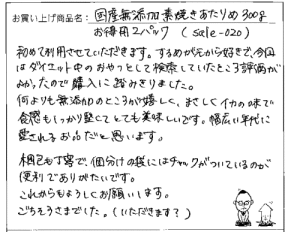 お買い上げ商品名：国産無添加素焼きあたりめ300g
お得2パック (sale-020)
初めて利用させていただきます。するめが元から好きで、今回
はダイエット中のおやつとして検索していたところ評価が
よかったので購入に踏みきりました。
何よりも無添加のところが嬉しく、まさしくイカの味で
食感もしっかり堅くてとても美味しいです。幅広い年代に
愛されるお品だと思います。
梱包も丁寧で、個分けの袋にはチャックがついているのが
便利でありがたいです。
これからもよろしくお願いします。
ごちそうさまでした。(いただきます？)